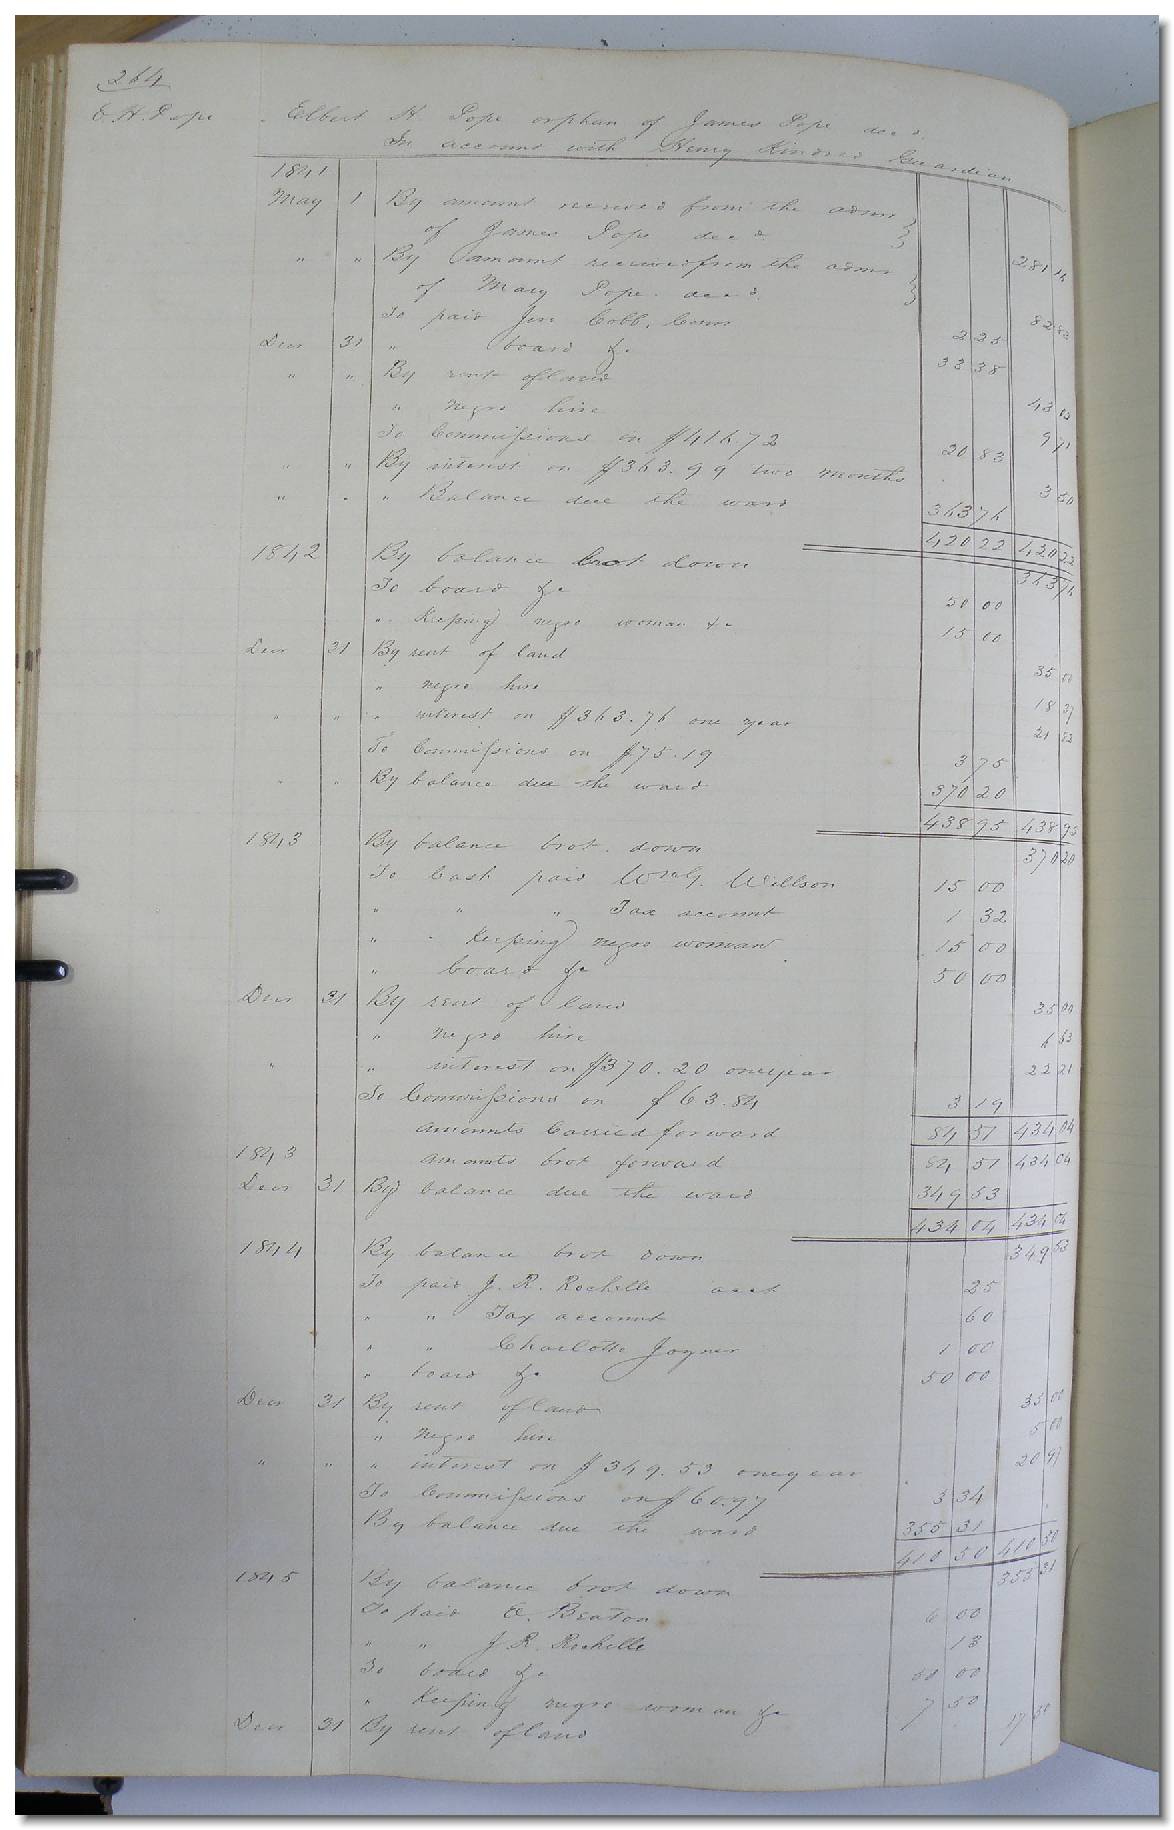 264
E. H. Pope Elbert H. Pope orphan of James Pope decd.
In account with Henry Kindred Guardian
1841
May 1 By amount received from the admr
of James Pope decd 281 16
" " By amount received from the admr
of Mary Pope decd. 82 83
To paid Jere Cobb, Comr 2 25
Decr 31 " board &c 33 38
" " By rent of land 43 02
" negro hire 9 71
To Commissions on $416.72 20 83
" " By interest on $363.99 two months 3 50
" " " Balance due the ward 363 76
420 22 420 22
1842 By balance brot down 363 76
To board &c 50 00
" Keeping negro woman &c 15 00
Decr 31 By rent of land 35 00
" negro hire 18 37
" " " interest on $363.76 one year 21 82
To Commissions on $75.19 3 75
" " By balance due the ward 370 20
438 95 438 95
1843 By balance brot. down 370 20
To Cash paid Wm G. Willson 15 00
" " " Tax account 1 32
" " Keeping negro woman 15 00
" board &c 50 00
Decr 31 By rent of land 35 00
" negro hire 6 63
" " interest on $370.20 one year 22 21
To Commissions on $63.84 3 19
amounts Carried forward 84 51 434 04
1843 amounts brot forward 84 51 434 04
Decr 31 By balance due the ward 349 53
434 04 434 04
1844 By balance brot down 349 53
To paid J. R. Rochelle acct 25
" " Tax account 60
" " Charlotte Joyner 1 00
" board &c 50 00
Decr 31 By rent of land 35 00
" negro hire 5 00
" " " interest on $349.53 one year 20 97
To Commissions on $60.97 3 34
By balance due the ward 355 31
410 50 410 50
1845 By balance brot down 355 31
To paid E. Beaton 6 00
" " J. R. Rochelle 13
To board &c 50 00
" Keeping negro woman &c 7 50
Decr 31 By rent of land 17 50